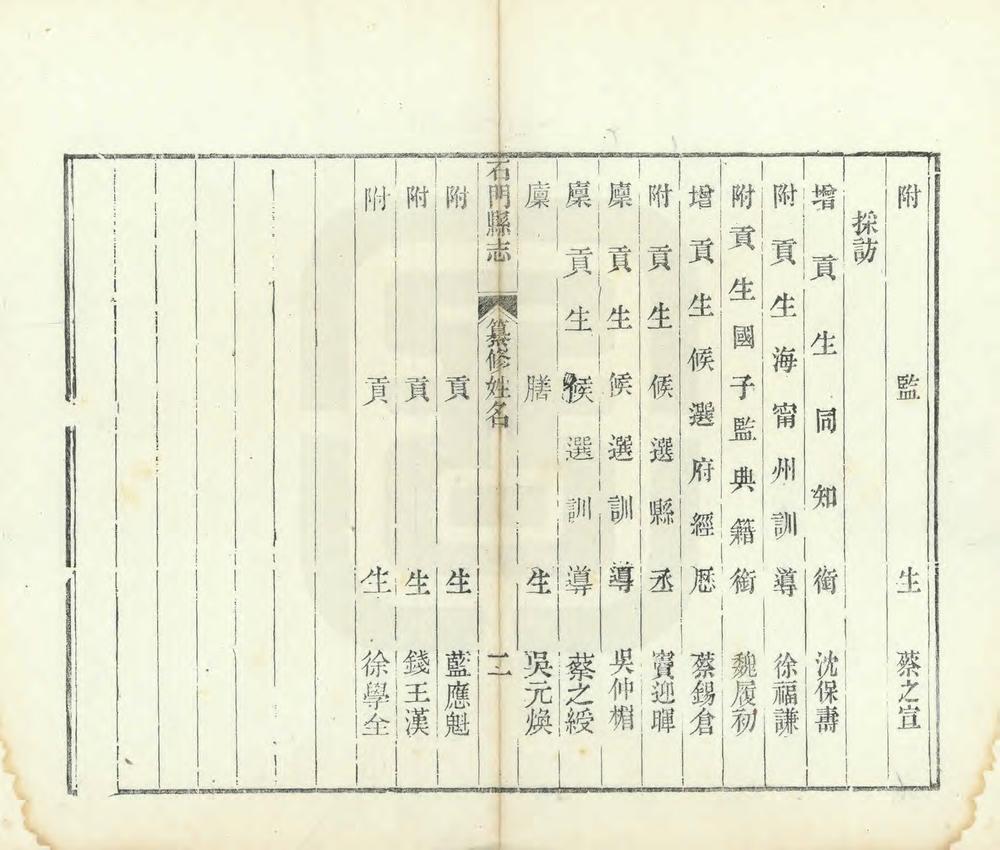 附監生蔡之宣
採訪
增貢生同知銜沈保壽
附貢生海甯州訓導徐福謙
附貢生國子監典籍銜魏履初
增貢生候選府經歷蔡錫倉
附貢生候選縣丞竇迎暉
廩貢生候選訓導吳仲楣
廩貢生候選訓導蔡之綬
廩膳生吳元煥
石門縣志 纂修姓名 二
附貢生藍應魁
附貢生錢王漢
附貢生徐學全